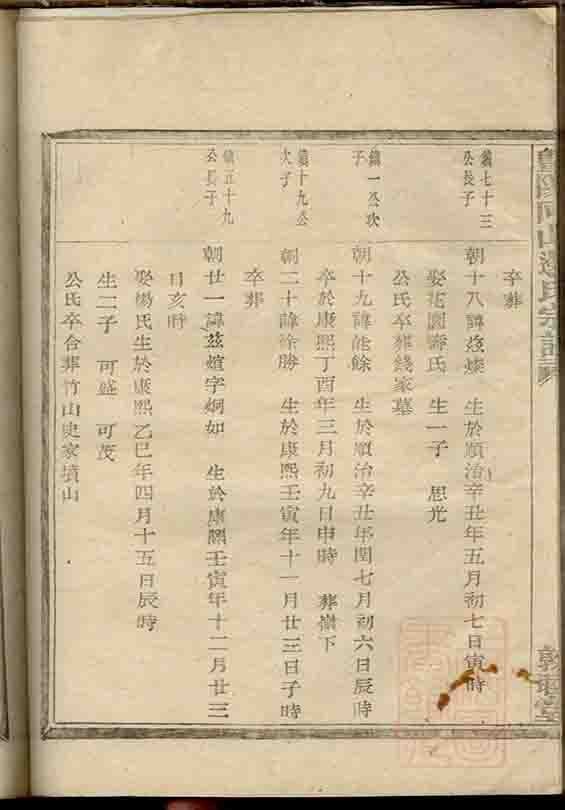 卒葬
鎮七十三公長子
朝十八諱 生於順治辛丑年五月初七日寅時
娶花園壽氏 生一子 思光
公氏卒葬錢家墓
鎮一公次子
朝十九諱能餘 生於順治辛丑年閏七月初六日辰時
卒於康熙丁酉年三月初九日申時 葬嶺下
鎮十九公次子
朝二十諱徐勝 生於康熙壬寅年十一月廿三日子時
卒葬
鎮五十九公長子
朝廿一諱茲煊字炯如 生於康熙壬寅年十二月廿三
日亥時
娶楊氏生於康熙乙巳年四月十五日辰時
生二子 可盛 可茂
公氏卒合葬竹山史家墳山